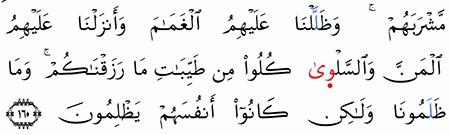 مَّشْرَبَهُمْ ۚ وَظَلَّلْنَا عَلَيْهِمُ ٱلْغَمَـٰمَ وَأَنزَلْنَا عَلَيْهِمُ
ٱلْمَنَّ وَٱلسَّلْوَىٰ ۖ كُلُوا۟ مِن طَيِّبَـٰتِ مَا رَزَقْنَـٰكُمْ ۚ وَمَا
ظَلَمُونَا وَلَـٰكِن كَانُوٓا۟ أَنفُسَهُمْ يَظْلِمُونَ ١٦٠